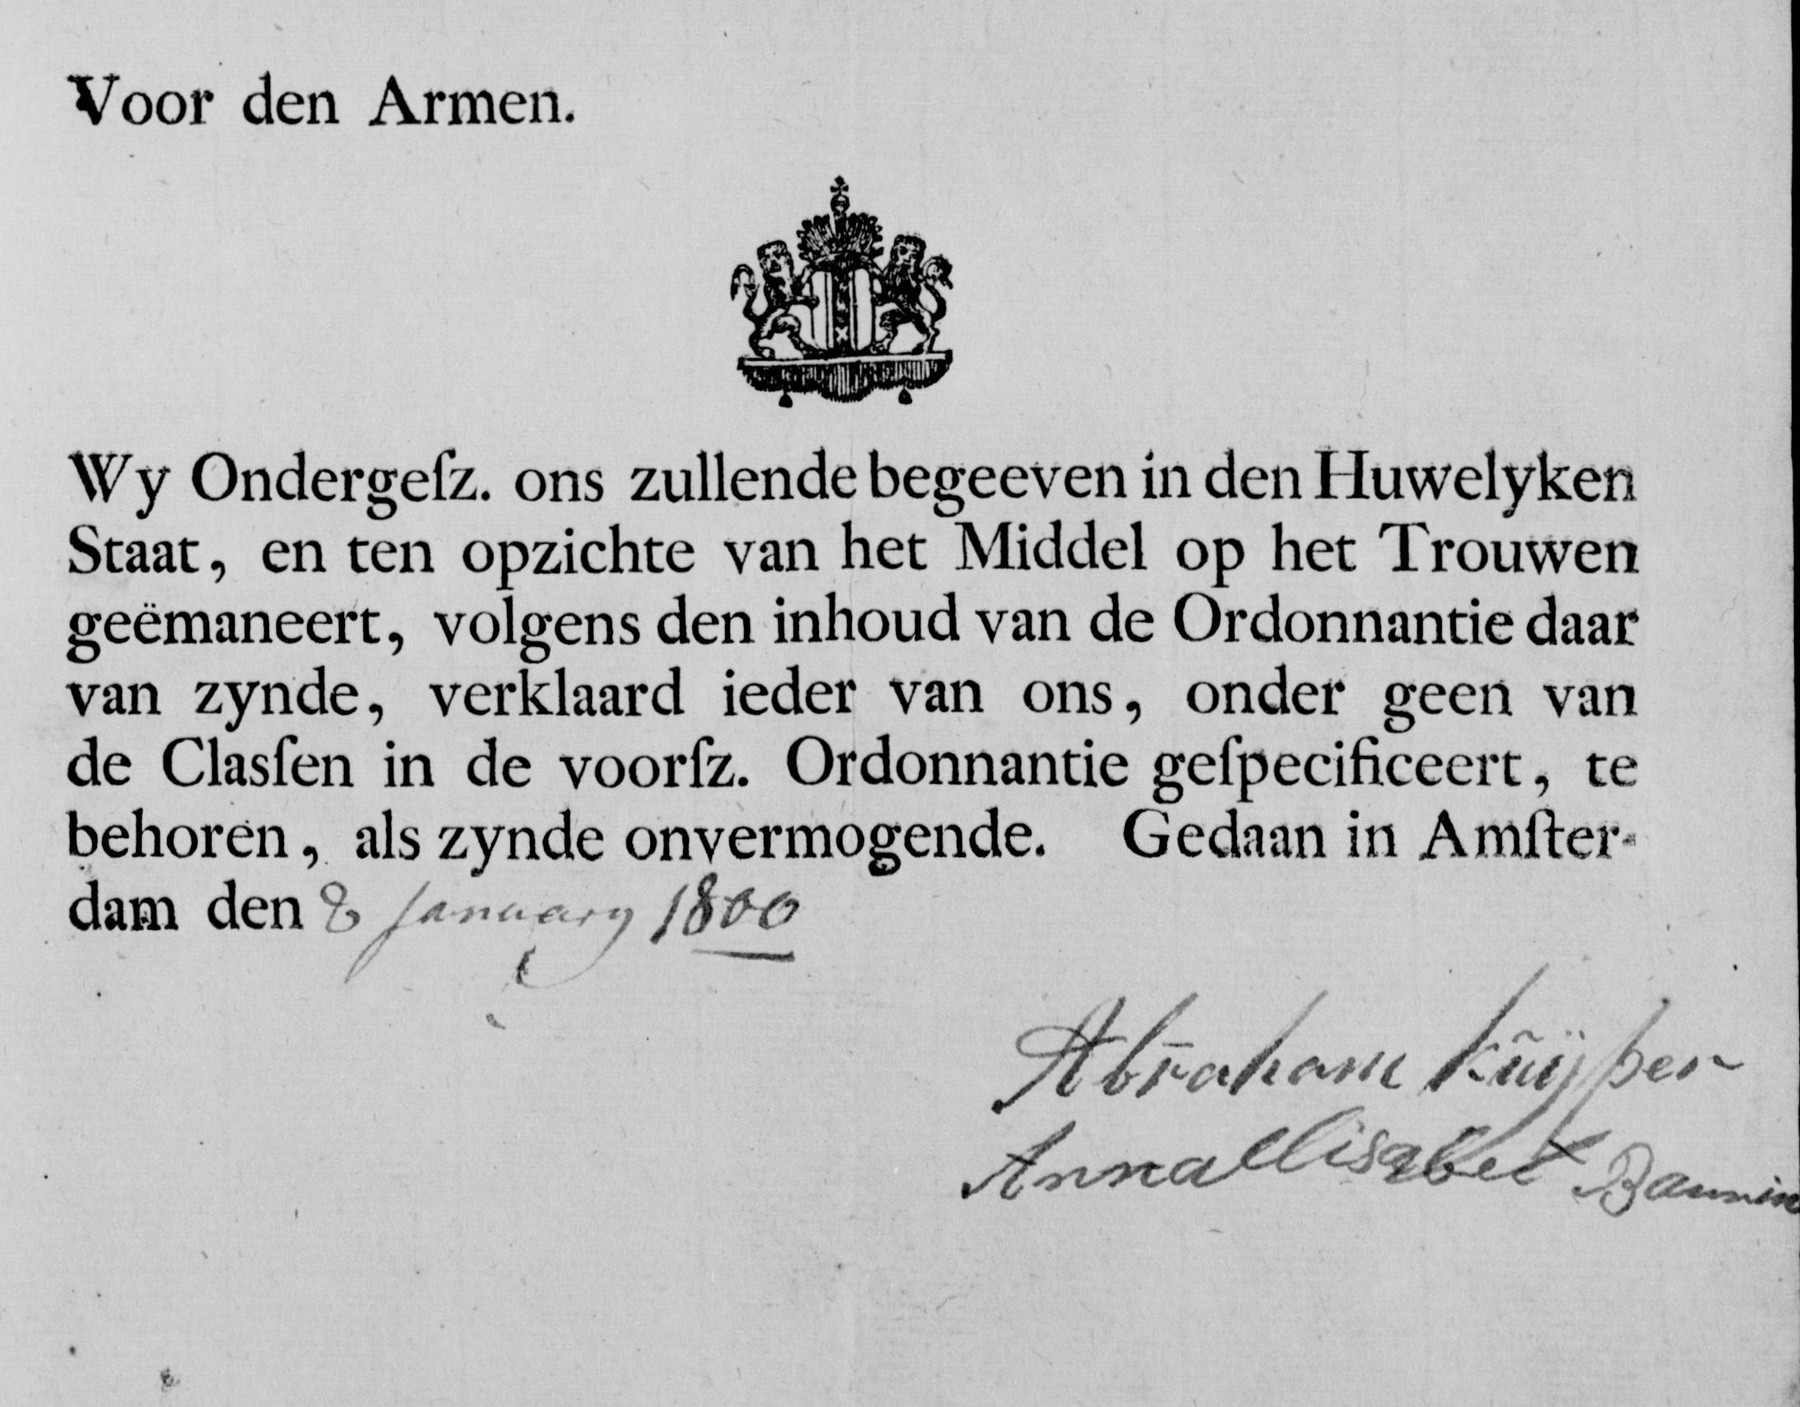 Voor den Armen.
Wy Ondergeſz. ons zullende begeeven in den Huwelyken
Staat, en ten opzichte van het Middel op het Trouwen
geëmaneert, volgens den inhoud van de Ordonnantie daar
van zynde, verklaard ieder van ons, onder geen van
de Clasſen in de voorſz. Ordonnantie geſpecificeert, te
behoren, als zynde onvermogende. Gedaan in Amſter-
dam den 8 January 1800
Abraham Kuÿper
Anna Elisabet